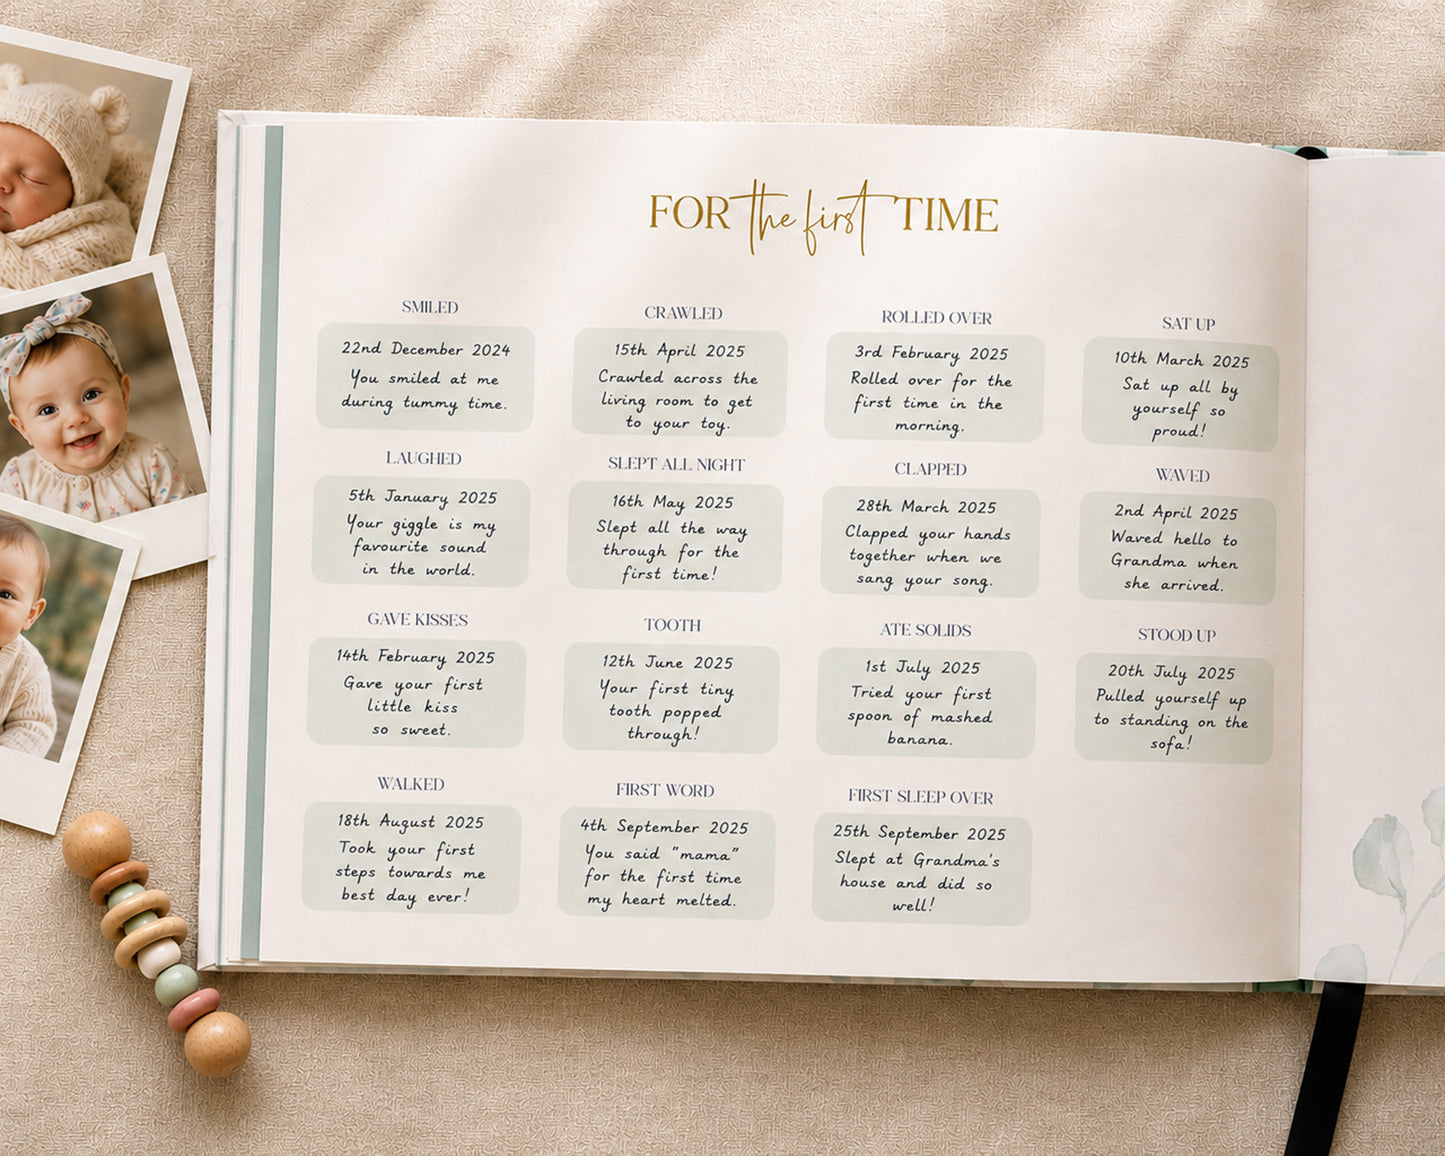 FOR the first TIME
SMILED
22nd December 2024
You smiled at me
during tummy time.
CRAWLED
15th April 2025
Crawled across the
living room to get
to your toy.
ROLLED OVER
3rd February 2025
Rolled over for the
first time in the
morning.
SAT UP
10th March 2025
Sat up all by
yourself so
proud!
LAUGHED
5th January 2025
Your giggle is my
favourite sound
in the world.
SLEPT ALL NIGHT
16th May 2025
Slept all the way
through for the
first time!
CLAPPED
28th March 2025
Clapped your hands
together when we
sang your song.
WAVED
2nd April 2025
Waved hello to
Grandma when
she arrived.
GAVE KISSES
14th February 2025
Gave your first
little kiss
so sweet.
TOOTH
12th June 2025
Your first tiny
tooth popped
through!
ATE SOLIDS
1st July 2025
Tried your first
spoon of mashed
banana.
STOOD UP
20th July 2025
Pulled yourself up
to standing on the
sofa!
WALKED
18th August 2025
Took your first
steps towards me
best day ever!
FIRST WORD
4th September 2025
You said "mama"
for the first time
my heart melted.
FIRST SLEEP OVER
25th September 2025
Slept at Grandma's
house and did so
well!